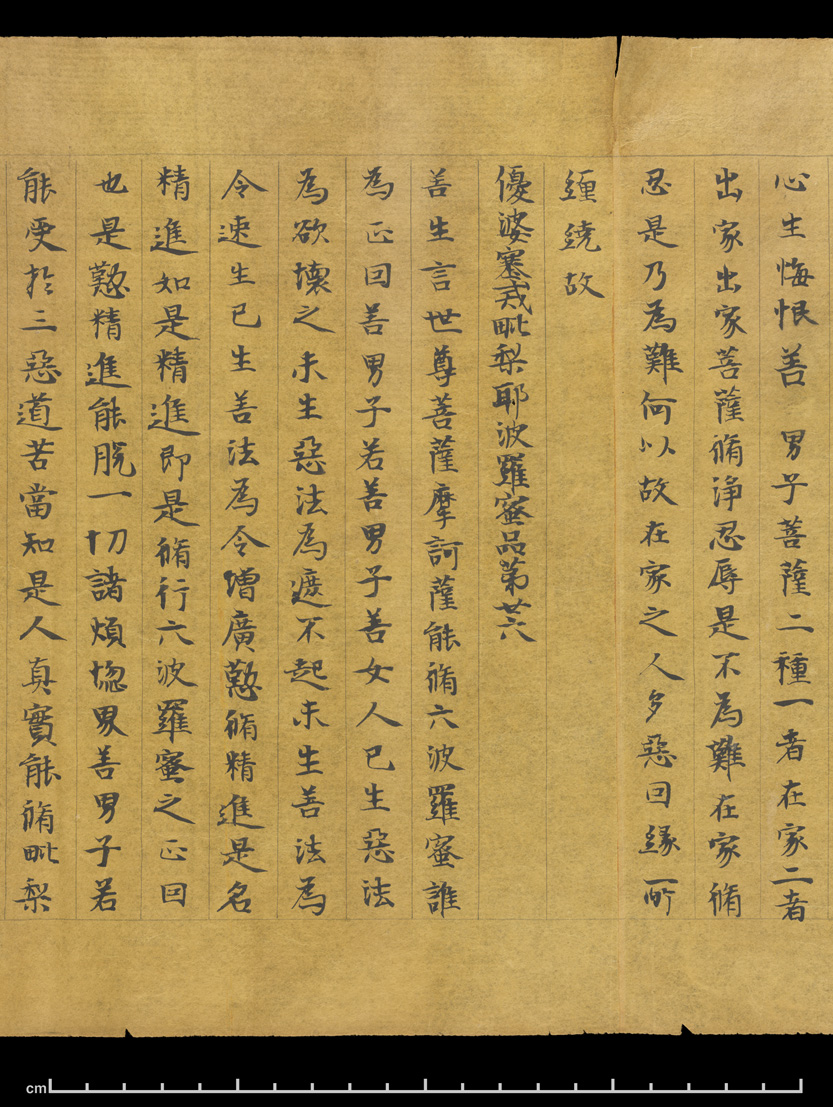 心生悔恨善男子菩薩二種一者在家二者
出家出家菩薩脩浄忍辱是不為難在家脩
忍是乃為難何以故在家之人多惡回緣所
纏繞故
優婆塞戒毗梨耶波羅蜜品第廿六
善生言世尊菩薩摩訶薩能脩六波羅蜜誰
為正回善男子若善男子善女人已生惡法
為欲壞之未生惡法為遮不起未生善法為
令速生已生善法為令增廣懃脩精進是名
精進如是精進即是脩行六波羅蜜之正回
也是懃精進能脫一切諸煩惱界善男子若
能受於三惡道苦當知是人真實能脩毗梨
cm